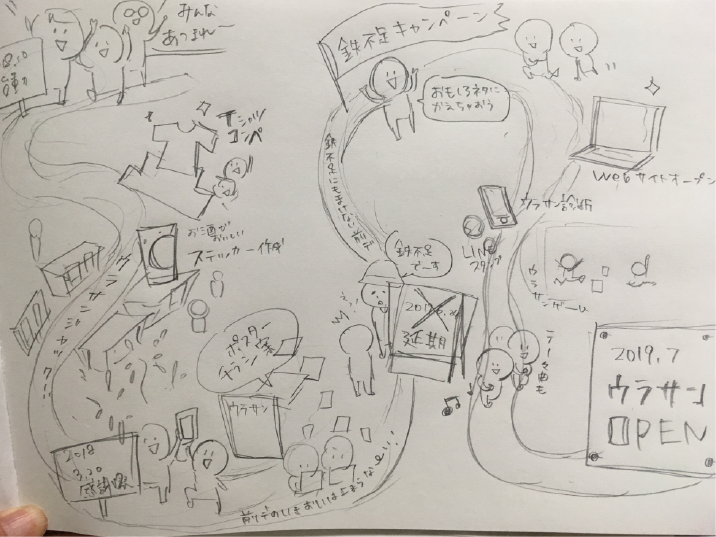 みんな
あつまれー
8.10
Tシャツ
コンペ
お酒が
おいしい
ステッカー作成
ウラサンジャック!!
ポスター
チラシ
ウラサン
2018
3.20
前リデのいきおいは止まらない!!
鉄不足キャンペーン
おもしろネタに
かえちゃおう
鉄不足にもまけない
鉄不足
でーす
延期
LINE
スタンプ
ウラサン診断
Webサイトオープン
ウラサンゲーム
テーマ曲も
2019.7
ウラサン
OPEN